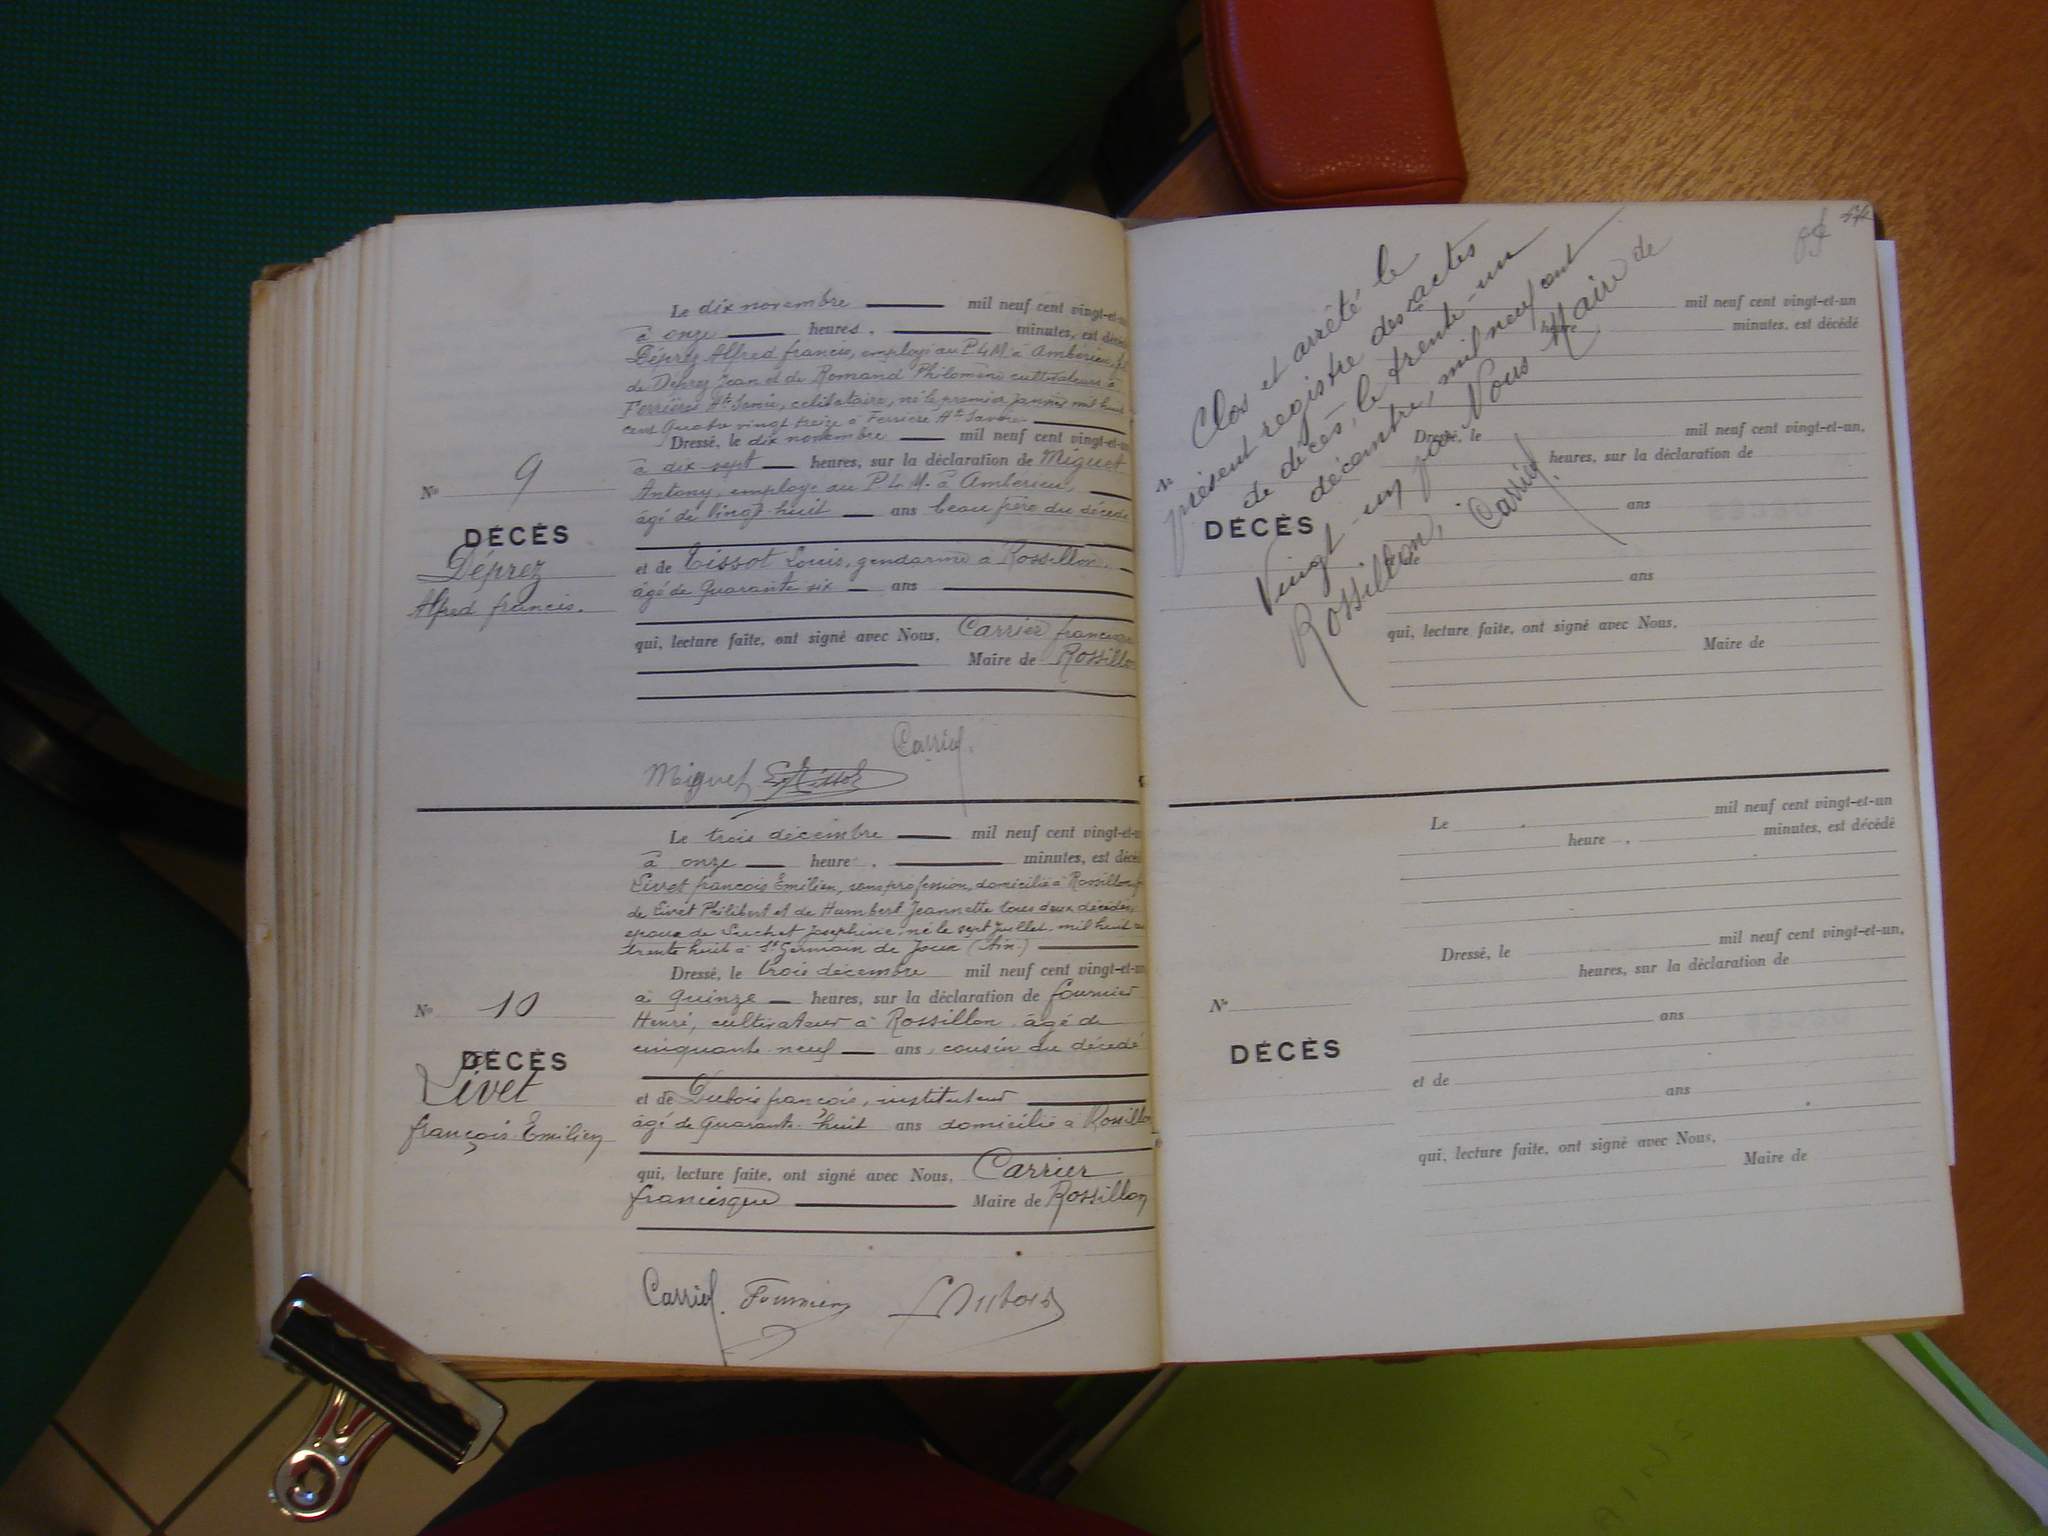 Le dix novembre mil neuf cent vingt-et-un
à onze heures, minutes, est décé
Déprez Alfred francis, employé au P L M. à Ambérieu, f
de Déprez Jean et de Romand Philomène cultivateurs à
Ferrières Hte Savoie, célibataire, né le premier janvier mil huit
cent quatre vingt treize à Ferrière Hte Savoie
Dressé, le dix novembre mil neuf cent vingt-et-un
à dix-sept heures, sur la déclaration de Miguet
Antony, employé au P L. M. à Ambérieu,
âgé de Vingt-huit ans beau frère du décédé
et de Tissot Louis, gendarme à Rossillon.
âgé de Quarante six ans
qui, lecture faite, ont signé avec Nous, Carrier francisque
Maire de Rossillon
No 9
DÉCÈS
Déprez
Alfred francis.
Carrier.
Miguet Tissot
Le trois décembre mil neuf cent vingt-et-u
à onze heure, minutes, est décé
Livet françois Emilien, sans profession, domicilié à Rossillon, f
de Livet Philibert et de Humbert Jeannette tous deux décédés,
époux de Suchet Joséphine, né le sept Juillet mil huit ce
trente huit à St Germain de Joux (Ain.)
Dressé, le trois décembre mil neuf cent vingt-et-un
à Quinze heures, sur la déclaration de fournier
Henri, cultivateur à Rossillon, âgé de
cinquante-neuf ans, cousin du décédé
et de Dubois françois, instituteur
âgé de Quarante-huit ans domicilié à Rossillon
qui, lecture faite, ont signé avec Nous, Carrier
francisque Maire de Rossillon
No 10
DÉCÈS
Livet
françois Emilien
Carrier. Fournier Dubois
Clos et arrêté le
présent registre des actes
de décès, le trente-un
décembre, mil neuf cent
Vingt-un par Nous Maire de
Rossillon, Carrier.
mil neuf cent vingt-et-un
heure minutes, est décédé
Dressé, le mil neuf cent vingt-et-un,
heures, sur la déclaration de
ans
No
DÉCÈS
et de
ans
qui, lecture faite, ont signé avec Nous,
Maire de
Le mil neuf cent vingt-et-un
heure, minutes, est décédé
Dressé, le mil neuf cent vingt-et-un,
heures, sur la déclaration de
No
ans
DÉCÈS
et de
ans
qui, lecture faite, ont signé avec Nous,
Maire de